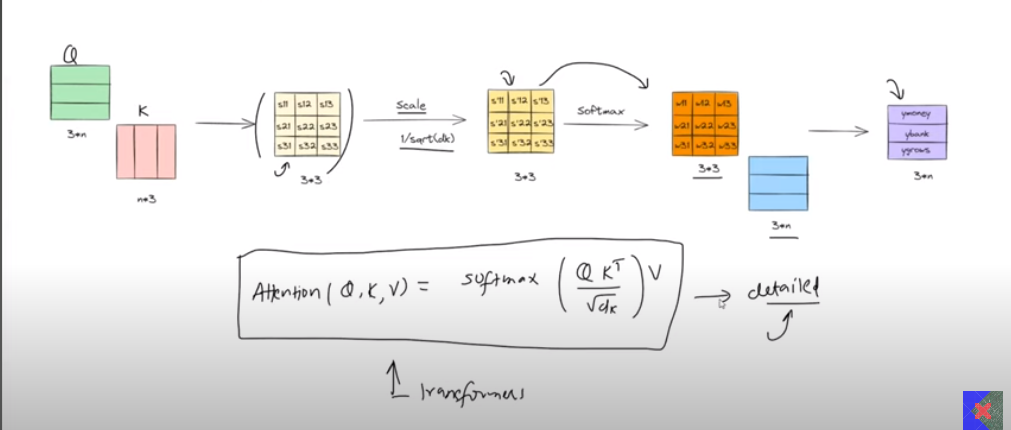 Q
3*n
K
n*3
s11 s12 s13
s21 s22 s23
s31 s32 s33
3*3
scale
1/sqrt(dk)
s'11 s'12 s'13
s'21 s'22 s'23
s'31 s'32 s'33
3*3
softmax
w11 w12 w13
w21 w22 w23
w31 w32 w33
3*3
3*n
ymoney
ybank
ygrows
3*n
Attention(Q,K,V) = softmax (QK^T/√dk) V
detailed
Transformers